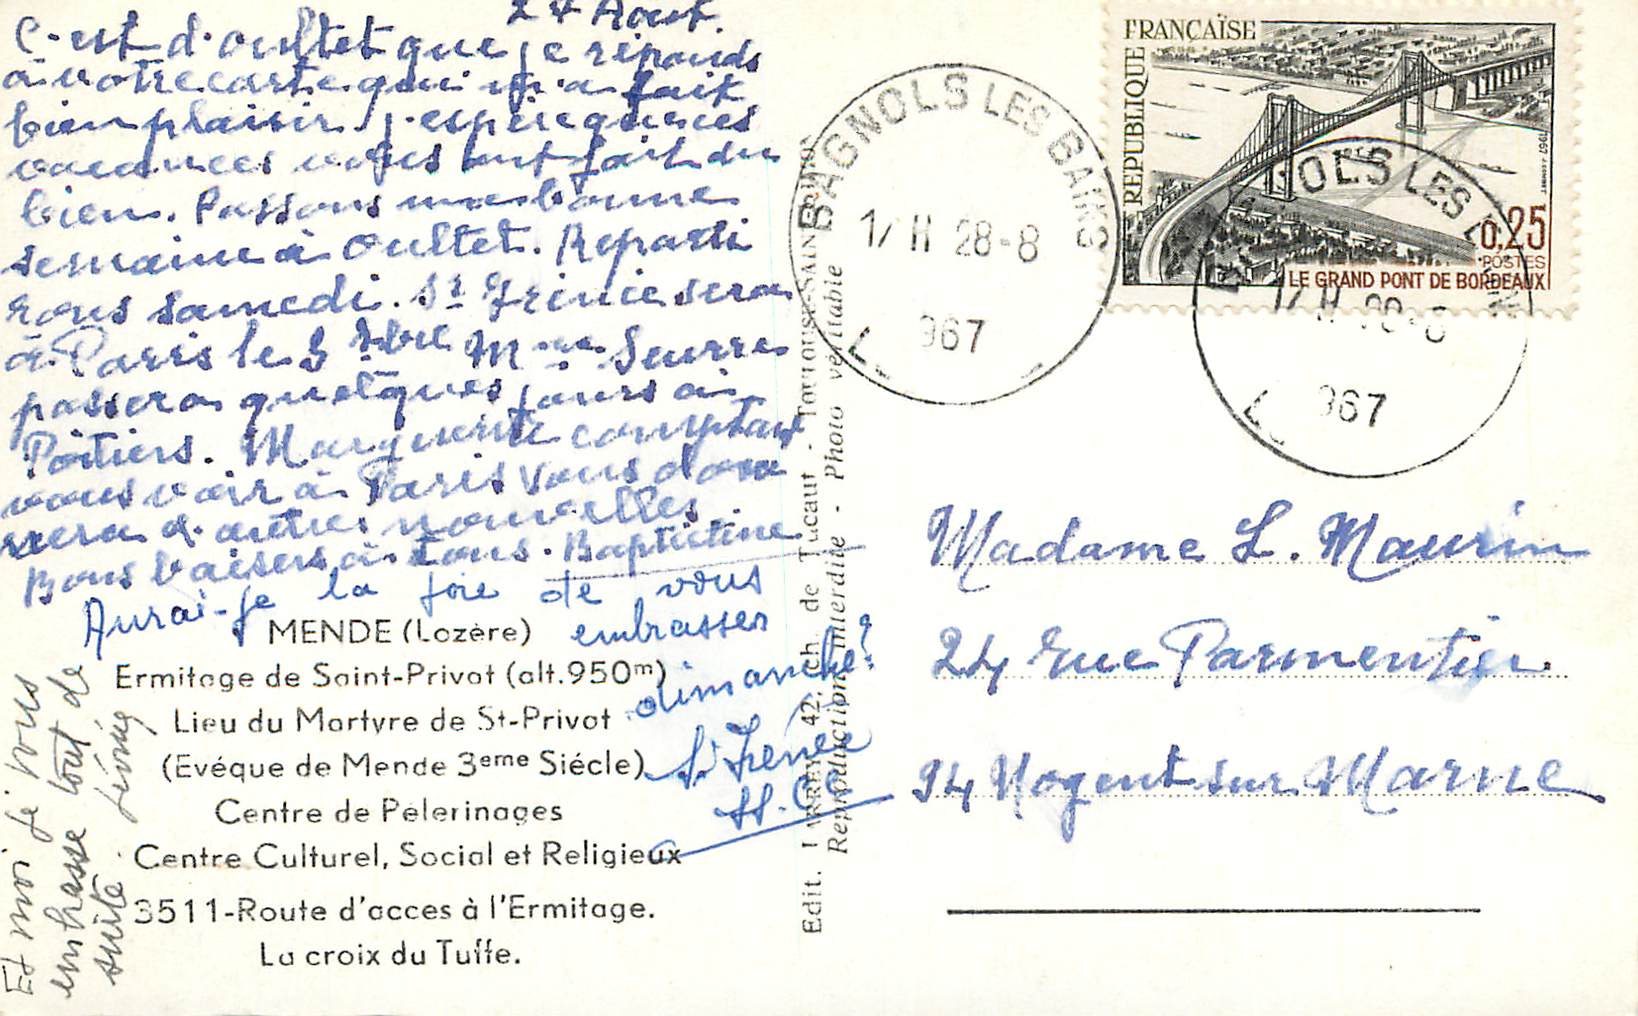 24 Aout
C'est d'oultet que je réponds
à votre carte qui m'a fait
bien plaisir. J'espère que ces
vacances vous ont fait du
bien. Passons une bonne
semaine à Oultet. Reparti
rons samedi. St Irénée sera
à Paris le 3 7bre Mme
passera quelques jours à
Poitiers. Marguerite comptant
vous voir à Paris vous don
nera d'autres nouvelles
Bons baisers à tous. Baptistine
Aurai-je la joie de vous
embrasser
dimanche?
St Irénée
Et moi je vous
embrasse tout de
suite.
MENDE (Lozère)
Ermitage de Saint-Privat (alt.950m)
Lieu du Martyre de St-Privat
(Evéque de Mende 3eme Siécle)
Centre de Pélerinages
Centre Culturel, Social et Religieux
3511-Route d'acces à l'Ermitage.
La croix du Tuffe.
Edit. LARREY 42, ch. de Tucaut - TOULOUSE-SAINT
Reproduction interdite - Photo véritable
BAGNOLS LES BAINS
17 H 28-8
967
RÉPUBLIQUE FRANÇAISE
0,25
POSTES
LE GRAND PONT DE BORDEAUX
1967
OLS LES
17 H 28-8
967
Madame L. Maurin
24 rue Parmentier
94 Nogent sur Marne